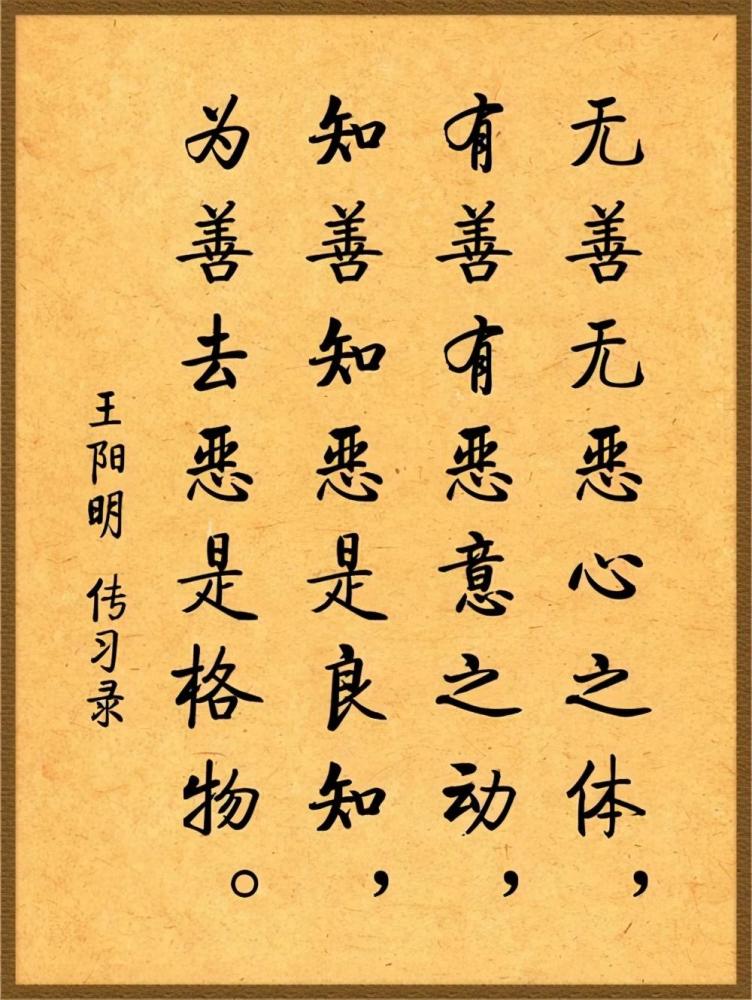 无善无恶心之体，
有善有恶意之动，
知善知恶是良知，
为善去恶是格物。
王阳明 传习录